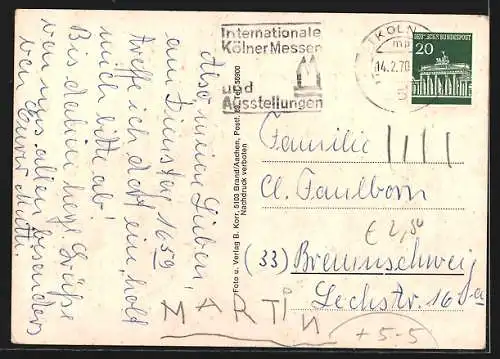 Also meine Lieben,
am Dienstag 16⁵⁹
treffe ich dort ein, holt
mich bitte ab!
Bis dahin herzl. Grüße
von uns allen besonders
von Eurer Mutti.
Internationale
Kölner Messen
und
Ausstellungen
KÖLN
mp
14.2.70
20
DEUTSCHE BUNDESPOST
Foto u. Verlag B. Korr, 5103 Brand/Aachen, Postf.
Nachdruck verboten
Familie
Cl. Faulborn
€ 2,50
(33) Braunschweig
Lechstr. 16
MARTIN
+5-5